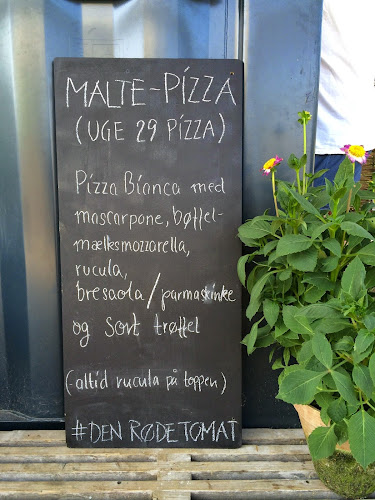 MALTE-PIZZA
(UGE 29 PIZZA)
Pizza Bianca med
mascarpone, bøffel-
mælksmozzarella,
rucula,
bresaola/parmaskinke
og sort trøffel
(altid rucula på toppen)
#DEN RØDE TOMAT